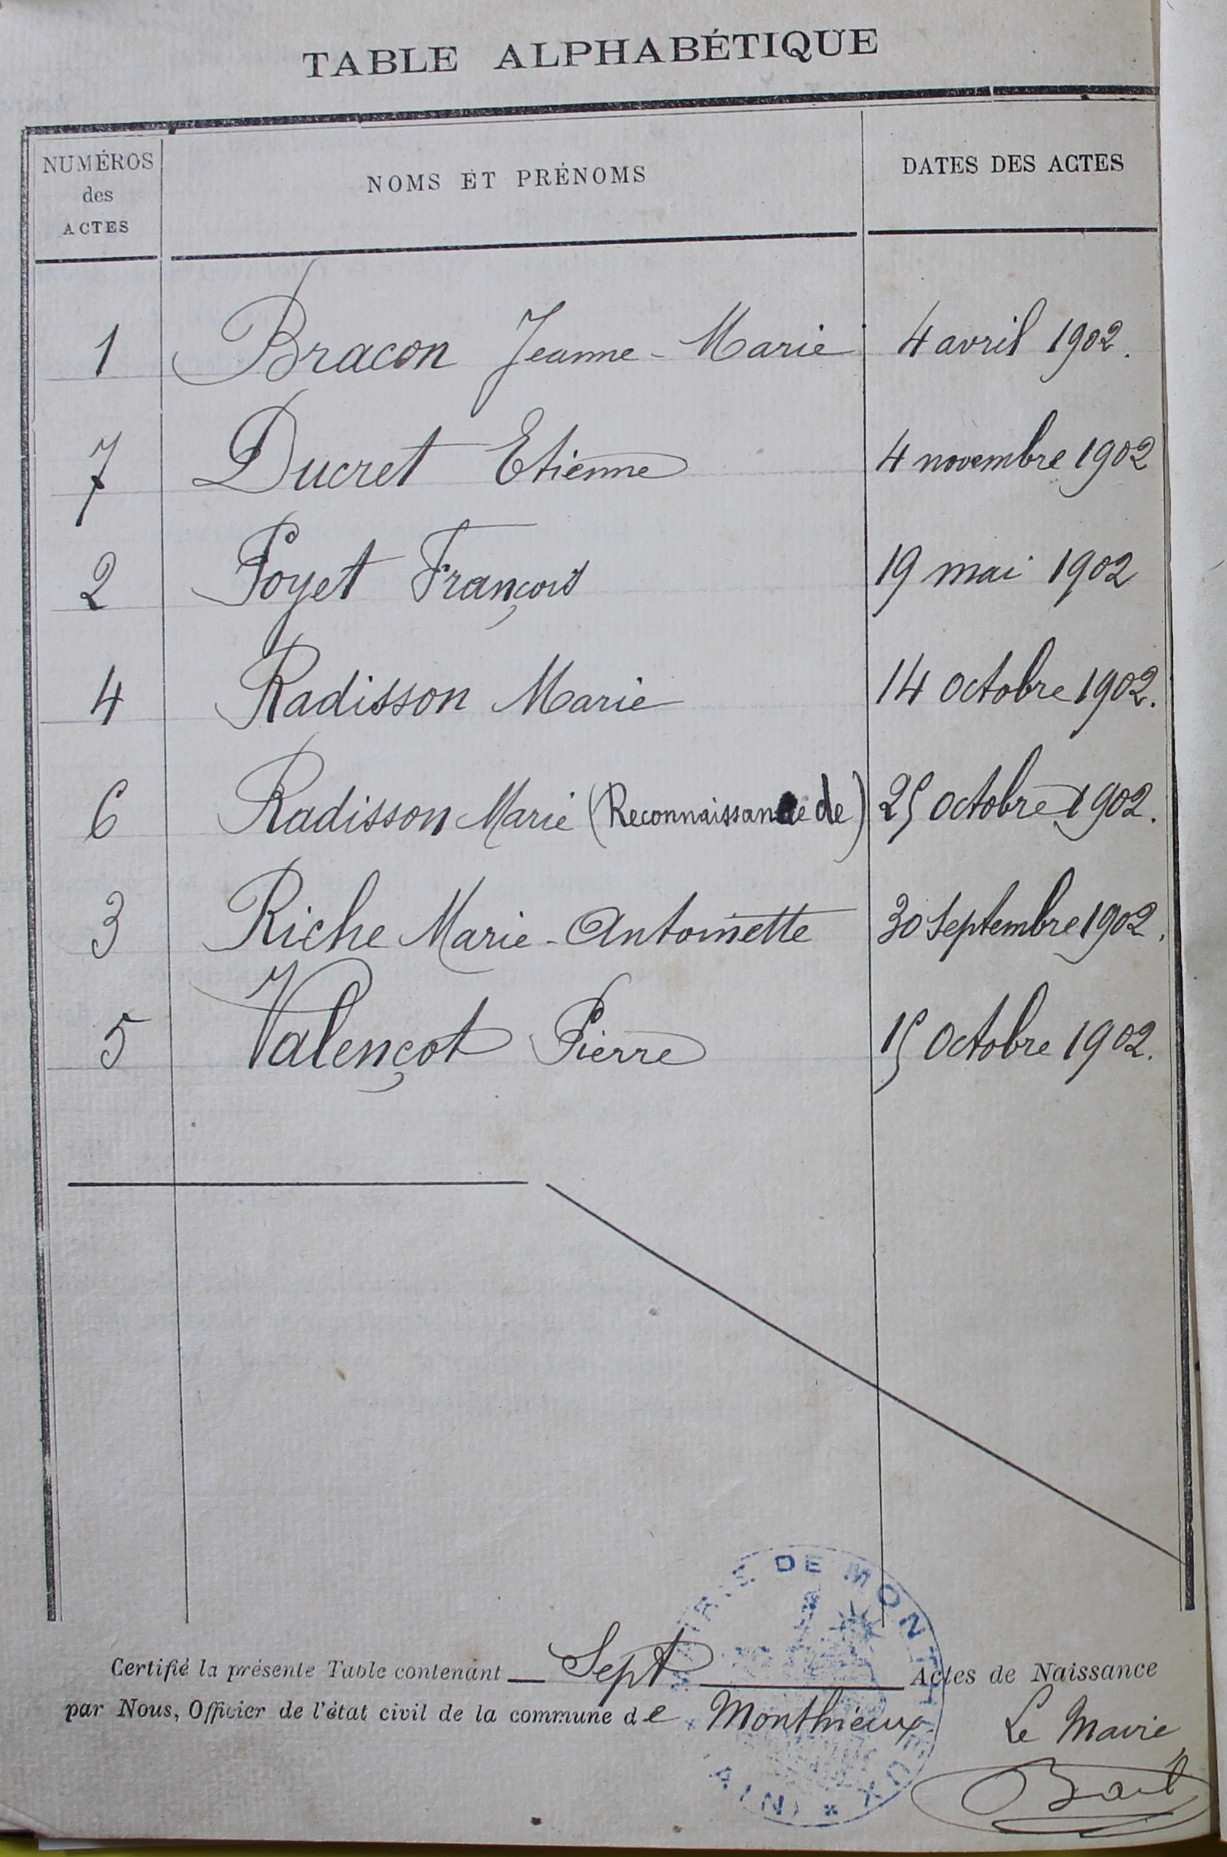 TABLE ALPHABÉTIQUE
NUMÉROS des ACTES NOMS ET PRÉNOMS DATES DES ACTES
1 Bracon Jeanne-Marie 4 avril 1902.
7 Ducret Etienne 4 novembre 1902
2 Poyet François 19 mai 1902
4 Radisson Marie 14 octobre 1902.
6 Radisson Marie (Reconnaissance de) 25 octobre 1902.
3 Riche Marie-Antoinette 30 septembre 1902.
5 Valençot Pierre 15 Octobre 1902.
Certifié la présente Table contenant Sept Actes de Naissance
par Nous, Officier de l'état civil de la commune de Monthieux
Le Maire
MAIRIE DE MONTHIEUX
(AIN)